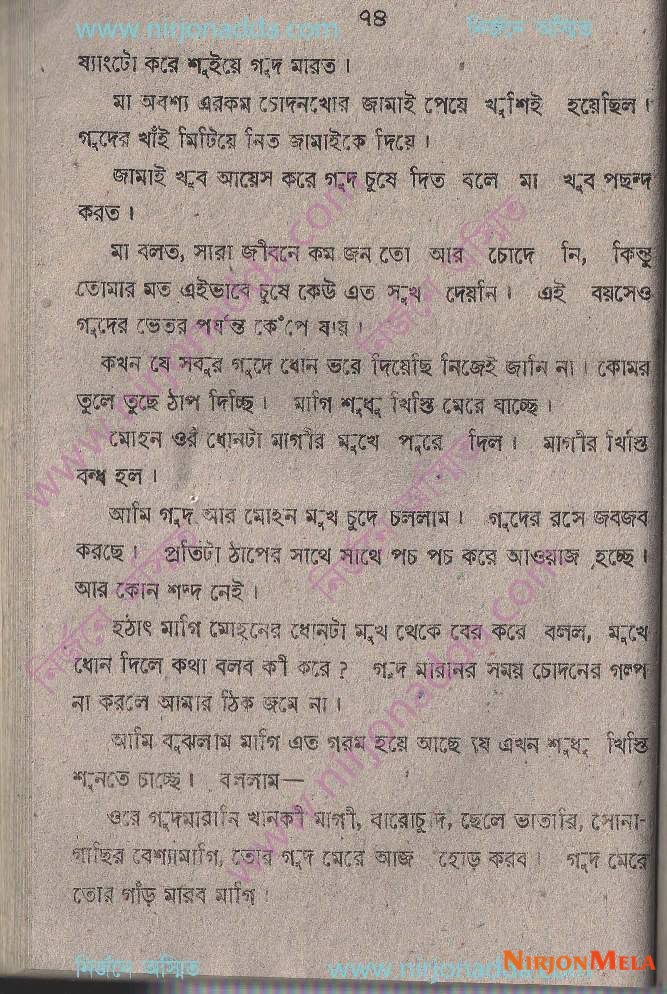 ৭৪
www.nirjonadda.com নির্জনে অস্মিত
ন্যাংটো করে শুইয়ে গুদ মারত।
মা অবশ্য এরকম চোদনখোর জামাই পেয়ে খুশিই হয়েছিল।
গুদের খাঁই মিটিয়ে নিত জামাইকে দিয়ে।
জামাই খুব আয়েস করে গুদ চুষে দিত বলে মা খুব পছন্দ
করত।
মা বলত, সারা জীবনে কম জন তো আর চোদে নি, কিন্তু
তোমার মত এইভাবে চুষে কেউ এত সুখ দেয়নি। এই বয়সেও
গুদের ভেতর পর্যন্ত কেঁপে যায়।
কখন যে সবুর গুদে ধোন ভরে দিয়েছি নিজেই জানি না। কোমর
তুলে তুছে ঠাপ দিচ্ছি। মাগি শুধু খিস্তি মেরে যাচ্ছে।
মোহন ওর ধোনটা মাগীর মুখে পুরে দিল। মাগীর খিস্তি
বন্ধ হল।
আমি গুদ আর মোহন মুখ চুদে চললাম। গুদের রসে জবজব
করছে। প্রতিটা ঠাপের সাথে সাথে পচ পচ করে আওয়াজ হচ্ছে।
আর কোন শব্দ নেই।
হঠাৎ মাগি মোহনের ধোনটা মুখ থেকে বের করে বলল, মুখে
ধোন দিলে কথা বলব কী করে ? গুদ মারানর সময় চোদনের গল্প
না করলে আমার ঠিক জমে না।
আমি বুঝলাম মাগি এত গরম হয়ে আছে যে এখন শুধু খিস্তি
শুনতে চাচ্ছে। বললাম—
ওরে গুদমারানি খানকী মাগী, বারোচুদি, ছেলে ভাতারি, সোনা-
গাছির বেশ্যামাগি, তোর গুদ মেরে আজ হোড় করব। গুদ মেরে
তোর গাঁড় মারব মাগি।
নির্জনে অস্মিত www.nirjonadda.com
NIRJONMELA